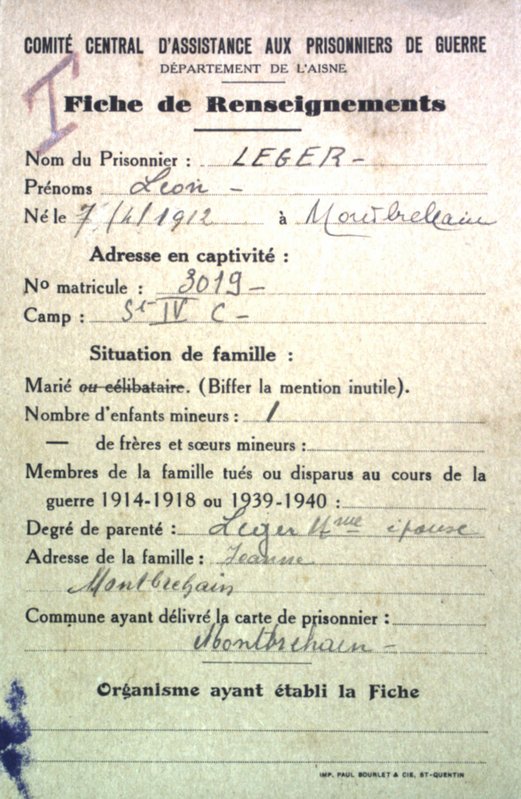 COMITÉ CENTRAL D'ASSISTANCE AUX PRISONNIERS DE GUERRE
DÉPARTEMENT DE L'AISNE
I
Fiche de Renseignements
Nom du Prisonnier : LEGER -
Prénoms Léon -
Né le 7/4/1912 à Montbrehain
Adresse en captivité :
No matricule : 3019 -
Camp : St IV C -
Situation de famille :
Marié ou célibataire. (Biffer la mention inutile).
Nombre d'enfants mineurs : 1
— de frères et sœurs mineurs :
Membres de la famille tués ou disparus au cours de la
guerre 1914-1918 ou 1939-1940 :
Degré de parenté : Leger Mme épouse
Adresse de la famille : Jeanne
Montbrehain
Commune ayant délivré la carte de prisonnier :
Montbrehain -
Organisme ayant établi la Fiche
IMP. PAUL BOURLET & CIE, ST-QUENTIN